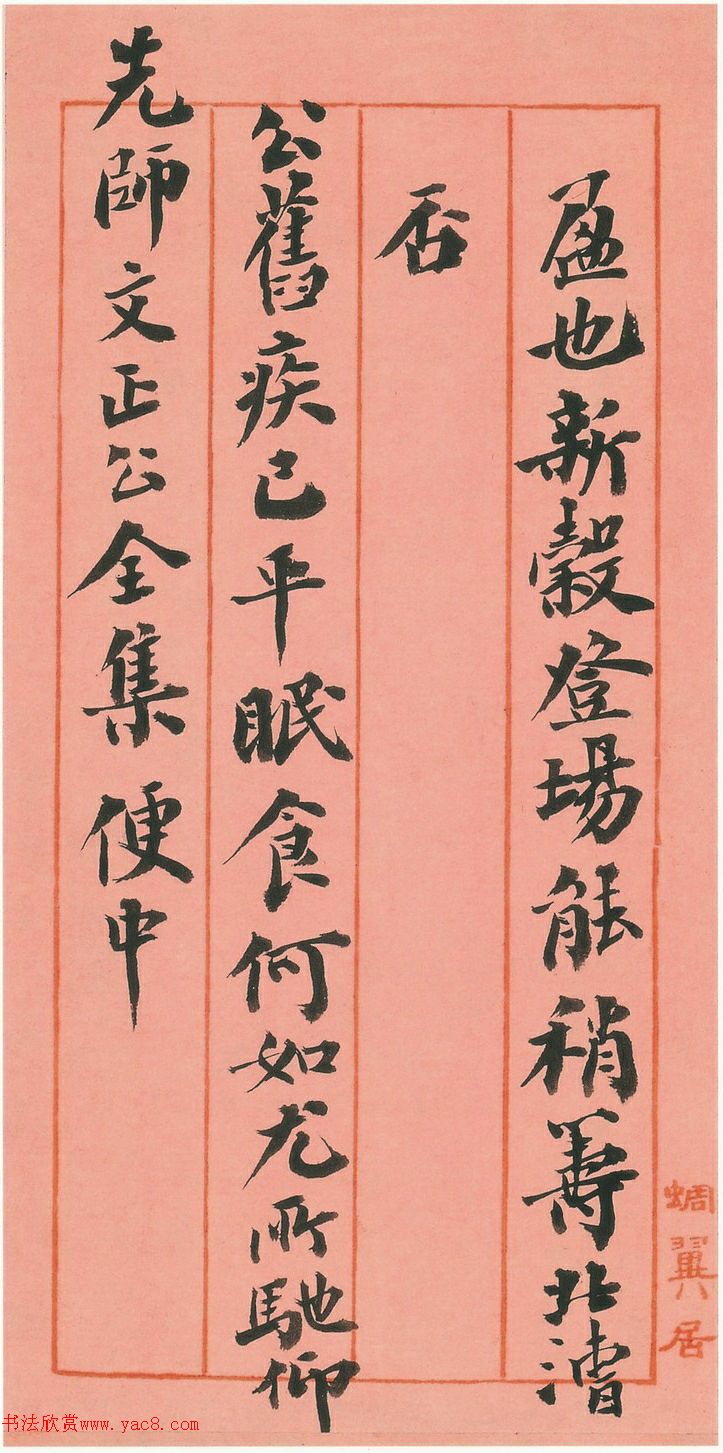 盈也新穀登場能稍籌北漕
否
公舊疾已平眠食何如尤所馳仰
先師文正公全集便中
蜩翼居
书法欣赏www.yac8.com